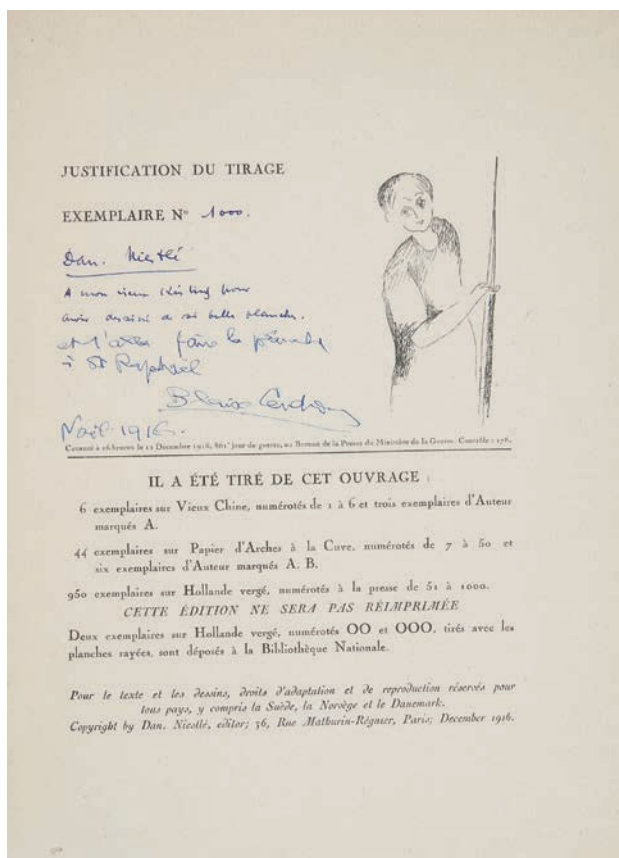 JUSTIFICATION DU TIRAGE
EXEMPLAIRE N° 1000.
Dan. Niestlé
A mon vieux Kisling pour
avoir dessiné de si belles planches.
et l'avoir faire la
à St Raphaël
Blaise Cendrars
Noël 1916.
Censuré à 16 heures le 12 Décembre 1916, 861e jour de guerre, au Bureau de la Presse du Ministère de la Guerre. Contrôle : 178.
IL A ÉTÉ TIRÉ DE CET OUVRAGE :
6 exemplaires sur Vieux Chine, numérotés de 1 à 6 et trois exemplaires d'Auteur
marqués A.
44 exemplaires sur Papier d'Arches à la Cuve, numérotés de 7 à 50 et
six exemplaires d'Auteur marqués A. B.
950 exemplaires sur Hollande vergé, numérotés à la presse de 51 à 1000.
CETTE ÉDITION NE SERA PAS RÉIMPRIMÉE
Deux exemplaires sur Hollande vergé, numérotés OO et OOO, tirés avec les
planches rayées, sont déposés à la Bibliothèque Nationale.
Pour le texte et les dessins, droits d'adaptation et de reproduction réservés pour
tous pays, y compris la Suède, la Norvège et le Danemark.
Copyright by Dan. Niestlé, editor; 36, Rue Mathurin-Régnier, Paris; December 1916.